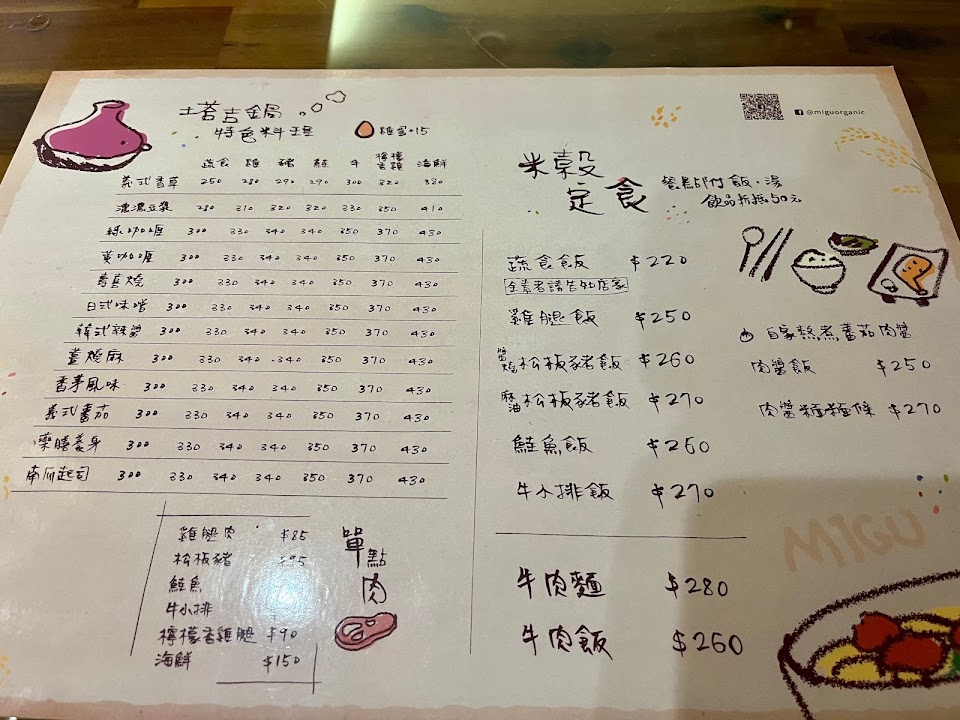 塔吉鍋
特色料理
雞蛋+15
蔬食 雞 豬 鮭 牛 檸檬香雞 海鮮
義式香草 250 280 290 290 300 320 380
濃濃豆漿 280 310 320 320 330 350 410
綠咖喱 300 330 340 340 350 370 430
黃咖喱 300 330 340 340 350 370 430
壽喜燒 300 330 340 340 350 370 430
日式味噌 300 330 340 340 350 370 430
韓式辣醬 300 330 340 340 350 370 430
薑燒麻 300 330 340 340 350 370 430
香茅風味 300 330 340 340 350 370 430
義式番茄 300 330 340 340 350 370 430
藥膳養身 300 330 340 340 350 370 430
南瓜起司 300 330 340 340 350 370 430
雞腿肉 $85
松板豬 $95
鮭魚
牛小排
檸檬香雞腿 $90
海鮮 $150
單點肉
@miguorganic
米穀定食
餐點附飯、湯
飲品折抵50元
蔬食飯 $220
全素者請告知店家
雞腿飯 $250
醬燒松板豬飯 $260
麻油松板豬飯 $270
鮭魚飯 $260
牛小排飯 $270
自家熬煮蕃茄肉醬
肉醬飯 $250
肉醬麵條 $270
牛肉麵 $280
牛肉飯 $260
MIGU